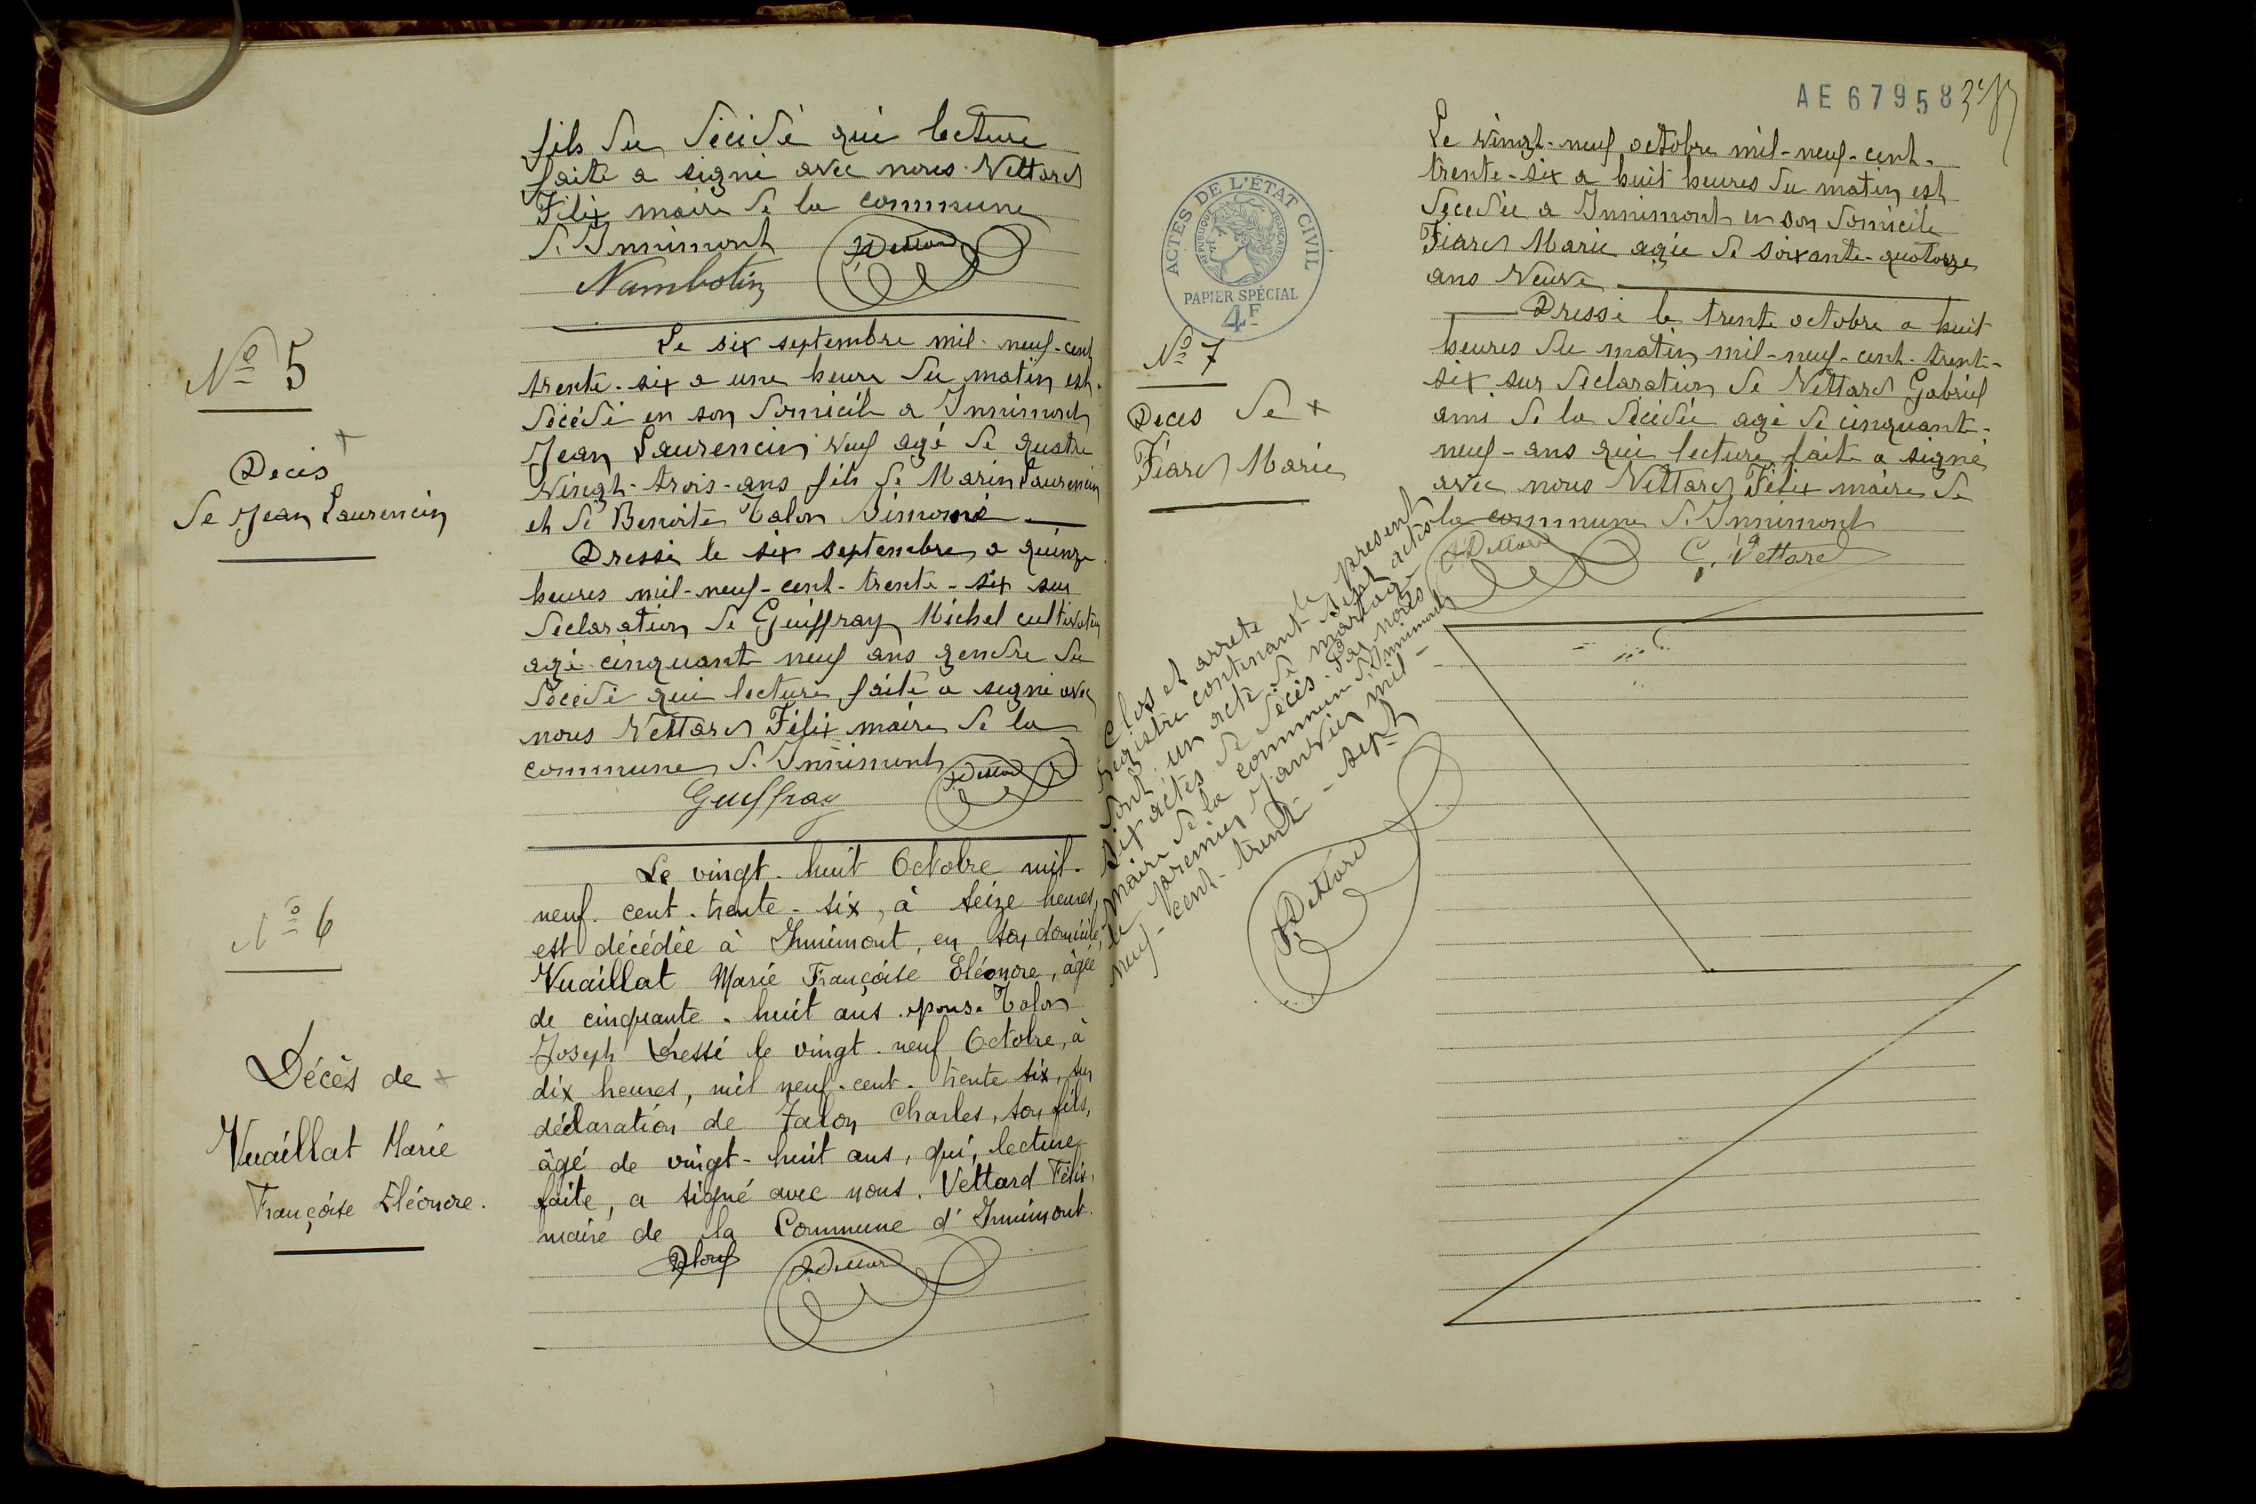 fils du décidé qui lecture
faite a signé avec nous Vettard
Félix maire de la commune
d'Innimont
Nambotin
Le six septembre mil-neuf-cent
trente-six a une heure du matin est
décédé en son domicile a Innimont
Jean Laurencin veuf agé de quatre
vingt-trois-ans fils de Marin Laurencin
et de Benoite Talon
Dressé le six septembre a quinze
heures mil-neuf-cent-trente-six sur
déclaration de Guiffray Michel cultivateur
agé cinquante neuf ans gendre du
décédé qui lecture faite a signé avec
nous Vettard Félix maire de la
commune d'Innimont
Guiffray
Le vingt-huit Octobre mil-
neuf-cent-trente-six, à seize heures,
est décédée à Innimont, en son domicile,
Vuaillat Marie Françoise Eléonore, âgée
de cinquante-huit ans. épouse Talon
Joseph Dressé le vingt-neuf Octobre, à
dix heures, mil neuf-cent-trente six, sur
déclaration de Talon Charles, son fils,
âgé de vingt-huit ans, qui, lecture
faite, a signé avec nous, Vettard Félix,
maire de la Commune d'Innimont.
N° 5
Decés
de Jean Laurencin
N° 6
Décès de
Vuaillat Marie
Françoise Eléonore.
AE 67958
ACTES DE L'ÉTAT CIVIL
RÉPUBLIQUE FRANÇAISE
PAPIER SPÉCIAL
4F
N° 7
Deces de
Fiard Marie
Le vingt-neuf octobre mil-neuf-cent-
trente-six a huit heures du matin est
décedée a Innimont en son domicile
Fiard Marie agée de soixante-quatorze
ans Veuve
Dressé le trente octobre a huit
heures du matin mil-neuf-cent-trente-
six sur déclaration de Vettard Gabriel
ami de la décédée agé de cinquante-
neuf-ans qui lecture faite a signé
avec nous Vettard Félix maire de
la commune d'Innimont
G. Vettard
Clos et arrete le present
registre contenant sept actes
dont un acte de mariage
six actes de décés. Par nous
maire de la commune d'Innimont
le premier janvier mil-
neuf-cent-trente-sept
F. Vettard